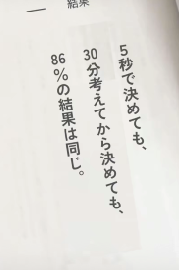 結果
5秒で決めても、
30分考えてから決めても、
86%の結果は同じ。